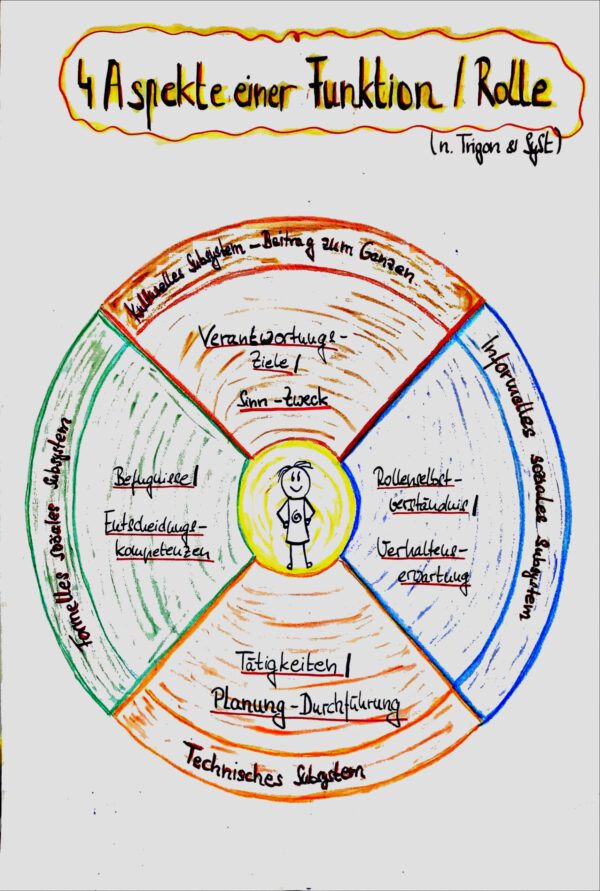 4 Aspekte einer Funktion / Rolle
(n. Trigon & SySt)
Kulturelles Subsystem – Beitrag zum Ganzen
Verantwortungs-
Ziele /
Sinn - Zweck
Informelles soziales Subsystem
Rollenselbst-
verständnis /
Verhaltens-
erwartung
Formelles soziales Subsystem
Befugnisse /
Entscheidungs-
kompetenzen
Tätigkeiten /
Planung - Durchführung
Technisches Subsystem